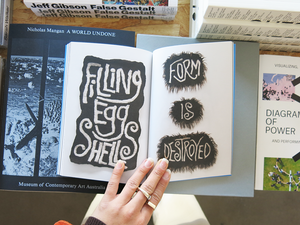 Jeff Gibson False Gestalt
Jeff Gibson False Gestalt
Nicholas Mangan A WORLD UNDONE
Museum of Contemporary Art Australia
FILLING
EGG
SHELLS
FORM
IS
DESTROYED
VISUALIZING
DIAGRAM
OF
POWER
AND PERFORMING